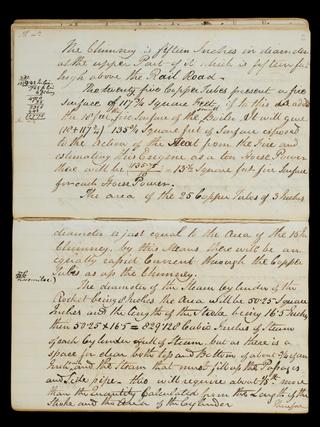 The Chimney is fifteen Inches in diameter
at the upper Part of it which is fifteen feet
high above the Rail Road.
The twenty five Copper Tubes present a fire
surface of 117¾ Square Feet, if to this add
the 18 feet fire Surface of the Boiler it will give
(18+117¾) 135¾ Square feet of Surface exposed
to the action of the Heat from the Fire and
estimating this Engine as a ten Horse Power
there will be 135.7/10 = 13½ Square feet fire Surface
for each Horse Power.
The area of the 25 Copper Tubes of 3 Inches
diameter is just equal to the Area of the 15 In
Chimney, by this Means there will be an
equally rapid Current through the Copper
Tubes as up the Chimney.
The diameter of the Steam Cylinder of the
Rocket being 8 Inches the Area will be 50.25 Square
Inches and the length of the Stroke being 16.5 Inches
then 50.25 x 16.5 = 829.120 Cubic Inches of Steam
of each Cylinder full of Steam, but as there is a
space for clear both top and Bottom of about ¾ of an
Inch, and the Steam that must fill up the Passages
and Side pipe this will require about more
than the Quantity Calculated from the Length of the
Stroke and the Area of the Cylinder